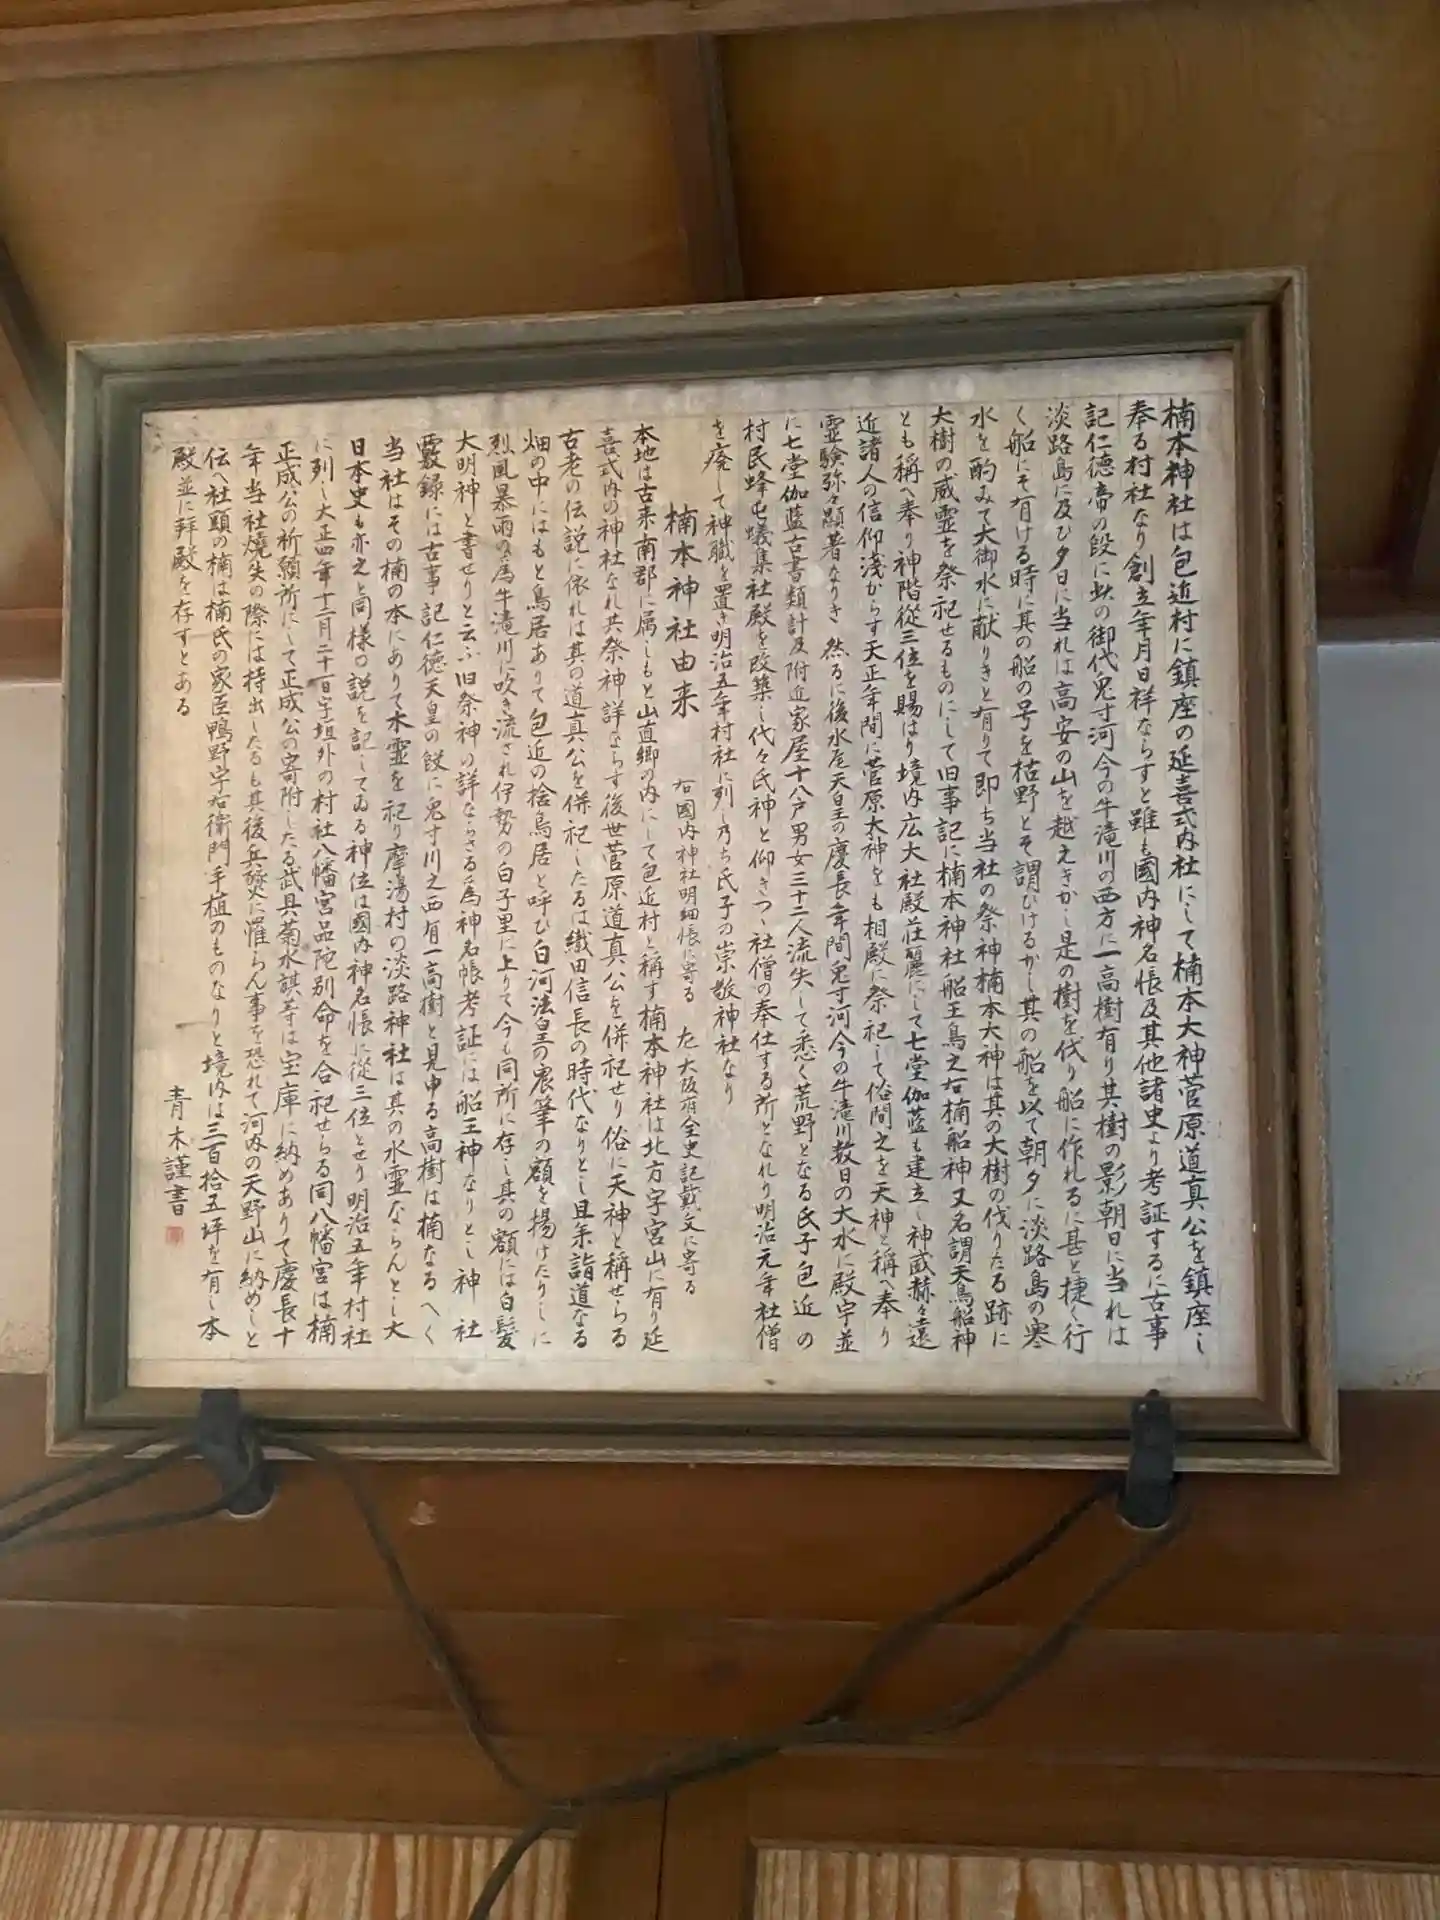 楠本神社は包近村に鎮座の延喜式内社にして楠本大神菅原道真公を鎮座し
奉る村社なり創立年月日祥ならすと雖も國内神名帳及其他諸史より考証するに古事
記仁徳帝の段に此の御代兎寸河今の牛滝川の西方に一高樹有り其樹の影朝日に当れは
淡路島に及ひ夕日に当れは高安の山を越えきかし是の樹を伐り船に作れるに甚と捷く行
く船にそ有ける時に其の船の号を枯野とそ謂ひけるかし其の船を以て朝夕に淡路島の寒
水を酌みて大御水に献りきと有りて即ち当社の祭神楠本大神は其の大樹の伐りたる跡に
大樹の威霊を祭祀せるものにして旧事記に楠本神社船王鳥之石楠船神又名謂天鳥船神
とも稱へ奉り神階從三位を賜はり境内広大社殿荘麗にして七堂伽藍も建立し神威赫々遠
近諸人の信仰淺からす天正年間に菅原大神をも相殿に祭祀して俗間之を天神と稱へ奉り
霊験弥々顯著なりき 然るに後水尾天皇の慶長年間兎寸河今の牛滝川数日の大水に殿宇並
に七堂伽藍古書類計及附近家屋十八戸男女三十二人流失して悉く荒野となる氏子包近の
村民蜂屯蟻集社殿を改築し代々氏神と仰きつゝ社僧の奉仕する所となれり明治元年社僧
を廃して神職を置き明治五年村社に列し乃ち氏子の崇敬神社なり
右國内神社明細帳に寄る 左大阪府全史記載文に寄る
楠本神社由来
本地は古来南郡に属しもと山直郷の内にして包近村と稱す楠本神社は北方字宮山に有り延
喜式内の神社なれ共祭神詳ならす後世菅原道真公を併祀せり俗に天神と稱せらる
古老の伝説に依れは其の道真公を併祀したるは織田信長の時代なりとし且来詣道なる
畑の中にはもと鳥居ありて包近の捨鳥居と呼ひ白河法皇の宸筆の額を揚けたりしに
烈風暴雨の為牛滝川に吹き流され伊勢の白子里に上りて今も同所に存し其の額には白髪
大明神と書せりと云ふ旧祭神の詳ならさる為神名帳考証には船王神なりとし神社
覈録には古事記仁徳天皇の段に兎寸川之西有一高樹と見申る高樹は楠なるへく
当社はその楠の本にありて木霊を祀り摩湯村の淡路神社は其の水霊ならんとし大
日本史も亦之と同様の説を記してゐる神位は國内神名帳に従三位とせり明治五年村社
に列し大正四年十二月二十一日字垣外の村社八幡宮品陀別命を合祀せらる同八幡宮は楠
正成公の祈願所にして正成公の寄附したる武具菊水旗等は宝庫に納めありて慶長十
年当社焼失の際には持出したるも其後兵燹に罹らん事を恐れて河内の天野山に納めしと
伝へ社頭の楠は楠氏の家臣鴨野宇右衛門手植のものなりと境内は三百拾五坪を有し本
殿並に拝殿を存すとある
青木謹書